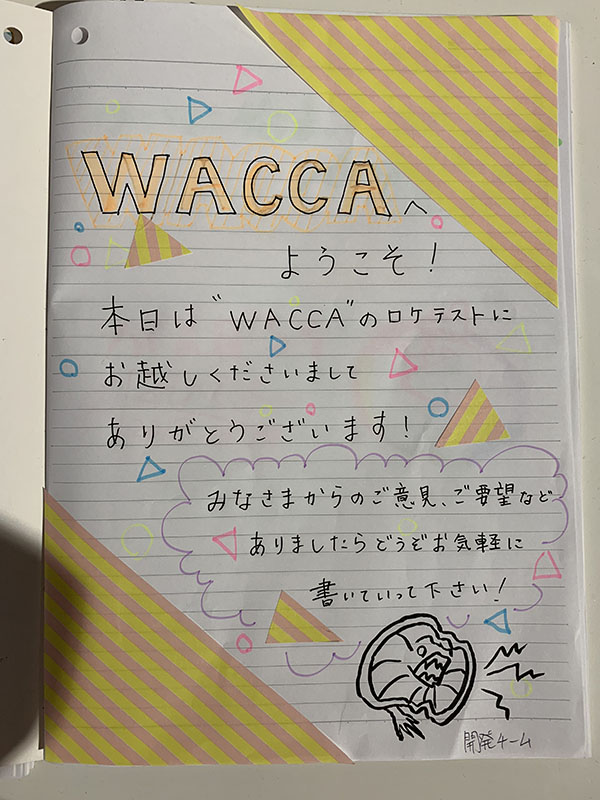 WACCAへ
ようこそ！
本日は"WACCA"のロケテストに
お越しくださいまして
ありがとうございます！
みなさまからのご意見、ご要望など
ありましたらどうぞお気軽に
書いていって下さい！
開発チーム